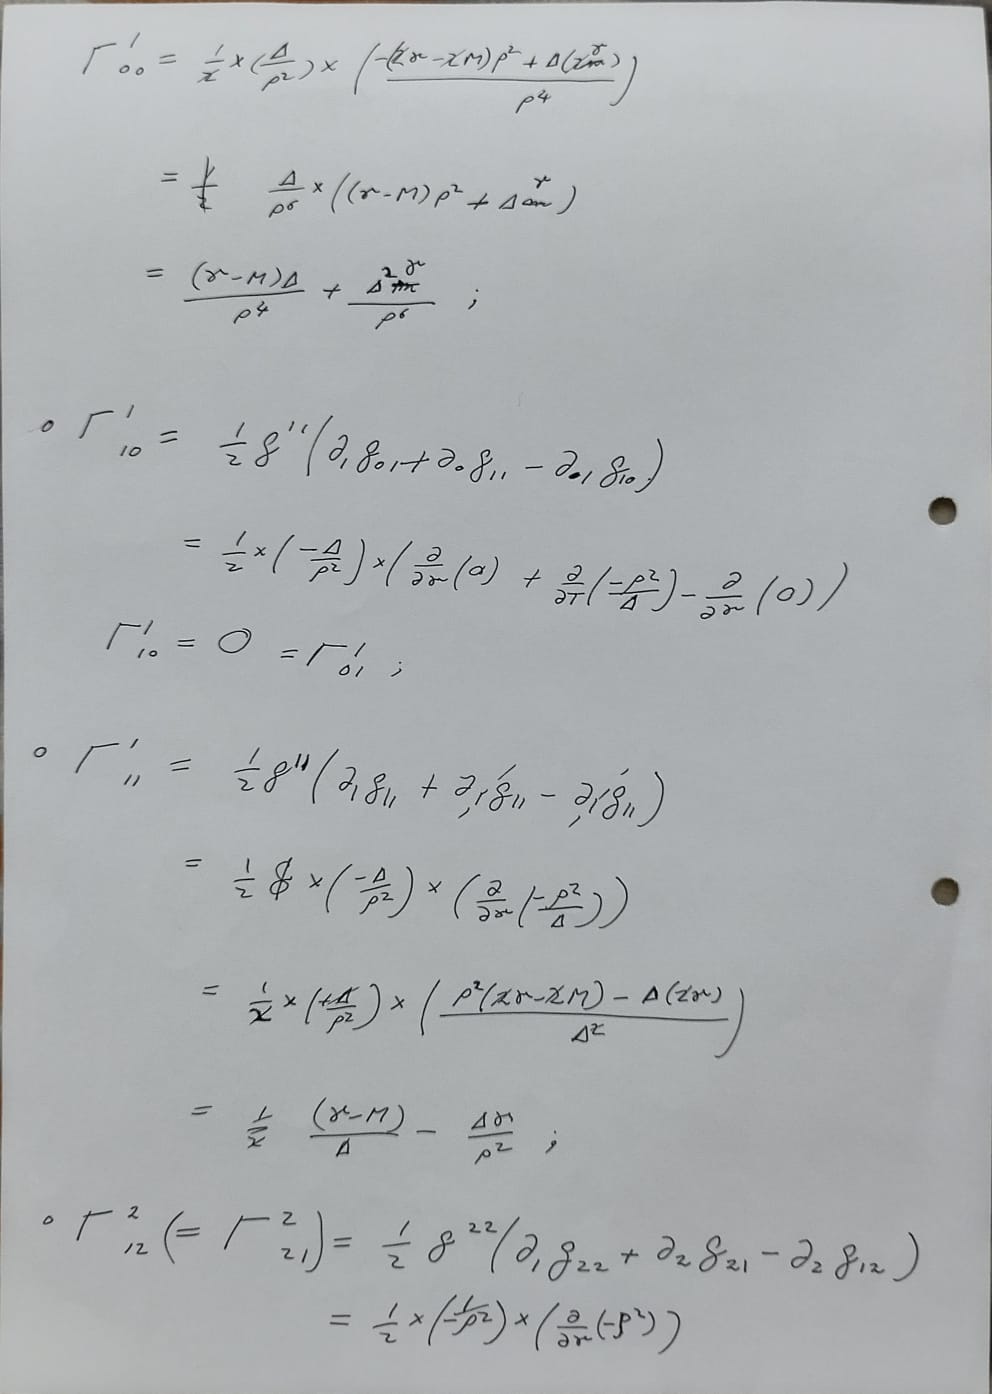 Γ¹₀₀ = 1/2 × (Δ/ρ²) × (-(2r - 2M)ρ² + Δ(2r) / ρ⁴)
= Δ/ρ⁶ × ((r-M)ρ² + Δr)
= (r-M)Δ/ρ⁴ + Δ²r/ρ⁶ ;
∘ Γ¹₁₀ = 1/2 g¹¹(∂₁g₀₁ + ∂₀g₁₁ - ∂₁g₁₀)
= 1/2 × (-Δ/ρ²) × (∂/∂r(0) + ∂/∂T(-ρ²/Δ) - ∂/∂r(0))
Γ¹₁₀ = 0 = Γ¹₀₁ ;
∘ Γ¹₁₁ = 1/2 g¹¹(∂₁g₁₁ + ∂₁g₁₁ - ∂₁g₁₁)
= 1/2 × (-Δ/ρ²) × (∂/∂r(-ρ²/Δ))
= 1/2 × (+Δ/ρ²) × (ρ²(2r-2M) - Δ(2r) / Δ²)
= (r-M)/Δ - Δr/ρ² ;
∘ Γ²₁₂ (= Γ²₂₁) = 1/2 g²²(∂₁g₂₂ + ∂₂g₂₁ - ∂₂g₁₂)
= 1/2 × (1/-ρ²) × (∂/∂r(-ρ²))